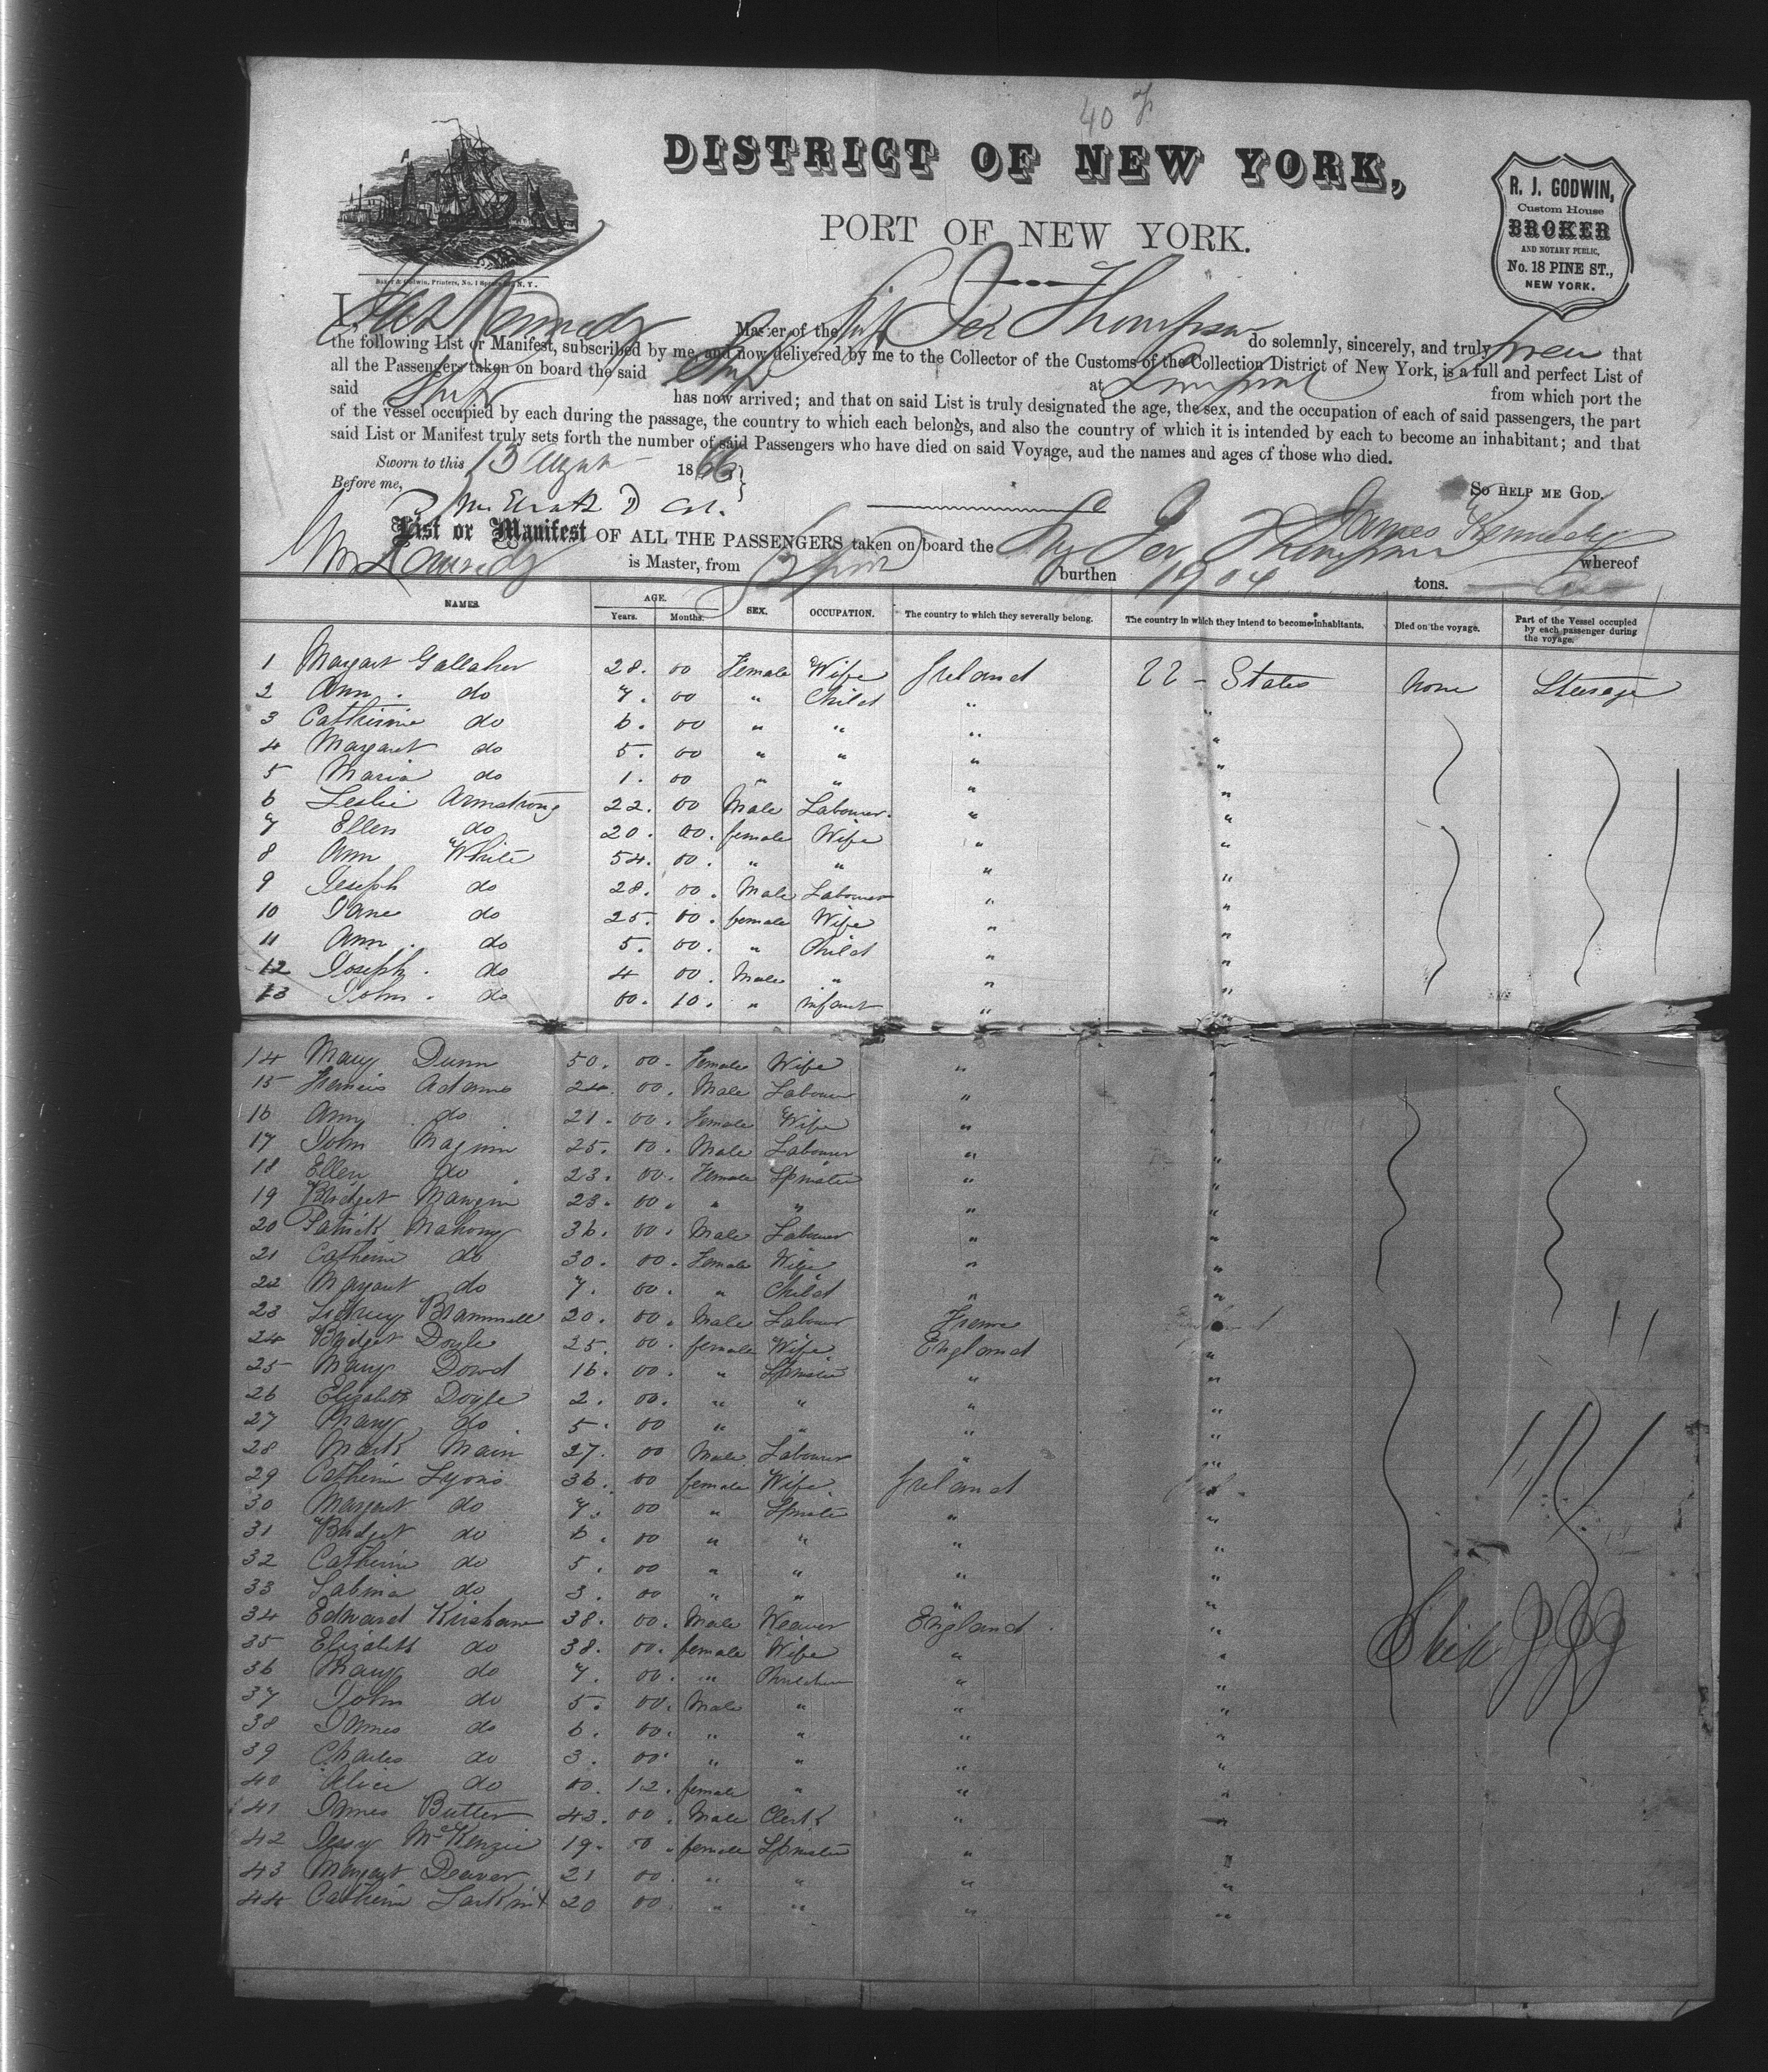 40
DISTRICT OF NEW YORK,
PORT OF NEW YORK.
R. J. GODWIN,
Custom House
BROKER
AND NOTARY PUBLIC,
No. 18 PINE ST.,
NEW YORK.
Baker & Godwin, Printers, No. 1 Spruce St., N. Y.
I, Jas Kennedy Master of the Ship Jer Thompson do solemnly, sincerely, and truly swear that
the following List or Manifest, subscribed by me, and now delivered by me to the Collector of the Customs of the Collection District of New York, is a full and perfect List of
all the Passengers taken on board the said Ship at Liverpool from which port the
said Ship has now arrived; and that on said List is truly designated the age, the sex, and the occupation of each of said passengers, the part
of the vessel occupied by each during the passage, the country to which each belongs, and also the country of which it is intended by each to become an inhabitant; and that
said List or Manifest truly sets forth the number of said Passengers who have died on said Voyage, and the names and ages of those who died.
Sworn to this 13 August 1866
Before me,
SO HELP ME GOD.
James Kennedy
List or Manifest OF ALL THE PASSENGERS taken on board the Ship Jer Thompson whereof
Kennedy is Master, from Liverpool burthen 1904 tons.
NAMES. AGE. Years. Months. SEX. OCCUPATION. The country to which they severally belong. The country in which they intend to become inhabitants. Died on the voyage. Part of the Vessel occupied by each passenger during the voyage.
1 Margart Gallaher 28. 00 Female Wife Ireland States None Steerage
2 Ann. do 7. 00 " Child " "
3 Catherine do 6. 00 " " " "
4 Margaret do 5. 00 " " " "
5 Maria do 1. 00 " " " "
6 Leslie Armstrong 22. 00 Male Labourer. " "
7 Ellen do 20. 00. female Wife " "
8 Ann White 54. 00. " " " "
9 Joseph do 28. 00. Male Labourer " "
10 Jane do 25. 00. female Wife " "
11 Ann. do 5. 00. " Child " "
12 Joseph. do 4 00. Male " " "
13 John. do 00. 10. " infant " "
14 Mary Dunn 50. 00. Female Wife " "
15 Francis Adams 24. 00. Male Labourer " "
16 Ann do 21. 00. Female Wife " "
17 John Maginn 25. 00. Male Labourer " "
18 Ellen do 23. 00. Female Spinster " "
19 Bridget 28. 00. " " " "
20 Patrick Mahony 36. 00. Male Labourer " "
21 Catherine do 30. 00. Female Wife " "
22 Margaret do 7. 00. " Child " "
23 Brammell 20. 00. Male Labourer "
24 Bridget Doyle 25. 00. female Wife England "
25 Mary Dowd 16. 00. " Spinster " "
26 Elizabeth Doyle 2. 00. " " " "
27 Mary do 5. 00 " " " "
28 Mark Main 27. 00 Male Labourer " "
29 Catherine Lyons 36. 00 female Wife. Ireland "
30 Margaret do 7. 00 " Spinster " "
31 Bridget do 6. 00 " " " "
32 Catherine do 5. 00 " " " "
33 Sabina do 3. 00 " " " "
34 Edward Kirsham 38. 00. Male Weaver England "
35 Elizabeth do 38. 00. female Wife " "
36 Mary do 7. 00. " Children " "
37 John do 5. 00. Male " " "
38 James do 6. 00. " " " "
39 Charles do 3. 00. " " " "
40 Alice do 00. 12. female " " "
41 James Butter 43. 00. Male Clerk " "
42 Jessy McKenzie 19. 00. female Spinster " "
43 Margart Deaver 21 00. " " " "
44 Catherine Larkin 20 00 " " " "